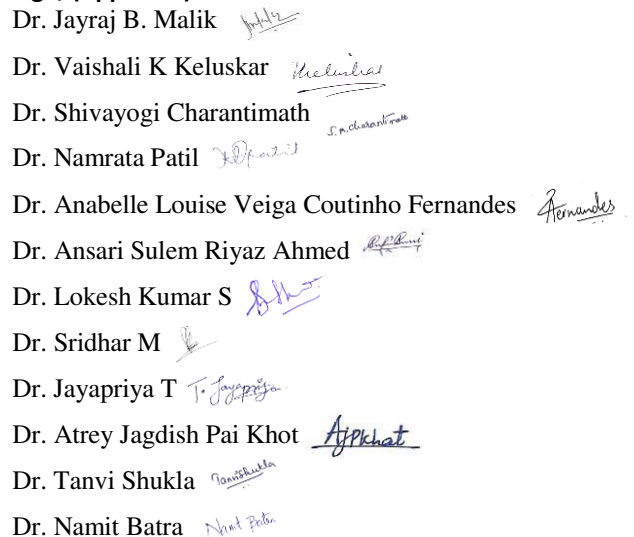 Dr. Jayraj B. Malik
Dr. Vaishali K Keluskar Keluskar
Dr. Shivayogi Charantimath S.M.charantimath
Dr. Namrata Patil
Dr. Anabelle Louise Veiga Coutinho Fernandes Fernandes
Dr. Ansari Sulem Riyaz Ahmed
Dr. Lokesh Kumar S
Dr. Sridhar M
Dr. Jayapriya T T. Jayapriya
Dr. Atrey Jagdish Pai Khot AJPKhot
Dr. Tanvi Shukla TanviShukla
Dr. Namit Batra Namit Batra